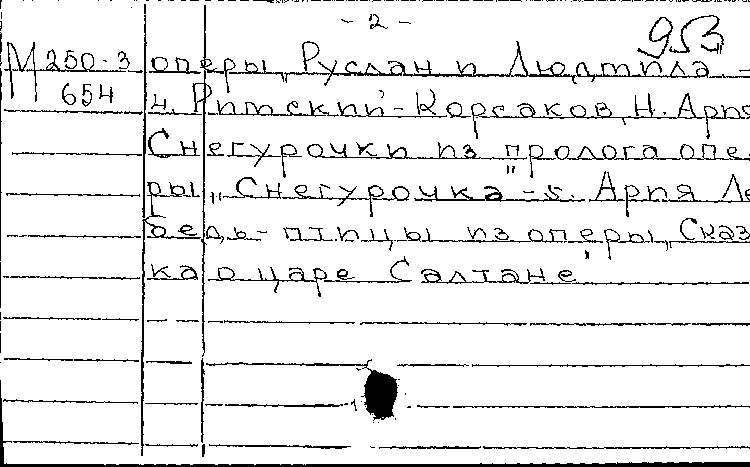 - 2 -
953
М 250-3 оперы „Руслан и Людмила. -
654 4. Римский-Корсаков, Н. Ария
Снегурочки из пролога опе-
ры „Снегурочка" - 5. Ария Ле-
бедь-птицы из оперы „Сказ
ка о царе Салтане"